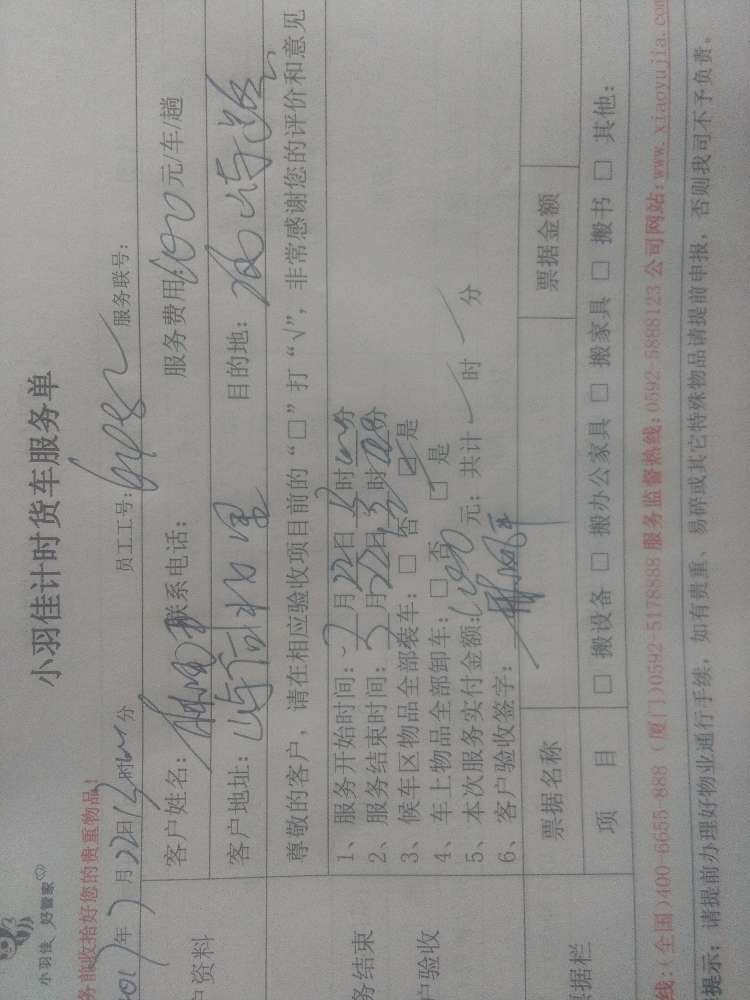 小羽佳 好管家
小羽佳计时货车服务单
务前收拾好您的贵重物品!
年7月22日12时分 员工工号: 服务联号:
户资料
客户姓名: 联系电话: 服务费用: 600元/车/趟
客户地址: 目的地:
尊敬的客户，请在相应验收项目前的“□”打“√”，非常感谢您的评价和意见
务结束
户验收
1、服务开始时间: 7月22日12时分
2、服务结束时间: 7月22日13时分
3、候车区物品全部装车: □ 否 ☑ 是
4、车上物品全部卸车: □ 否 □ 是
5、本次服务实付金额: 600元; 共计 时 分
6、客户验收签字:
票据栏
票据名称 票据金额
项 目 □ 搬设备 □ 搬办公家具 □ 搬家具 □ 搬书 □ 其他:
线:(全国)400-6655-888 (厦门)0592-5178888 服务监督热线:0592-5888123 公司网站:www.xiaoyujia.com
提示: 请提前办理好物业通行手续，如有贵重、易碎或其它特殊物品请提前申报，否则我司不予负责。